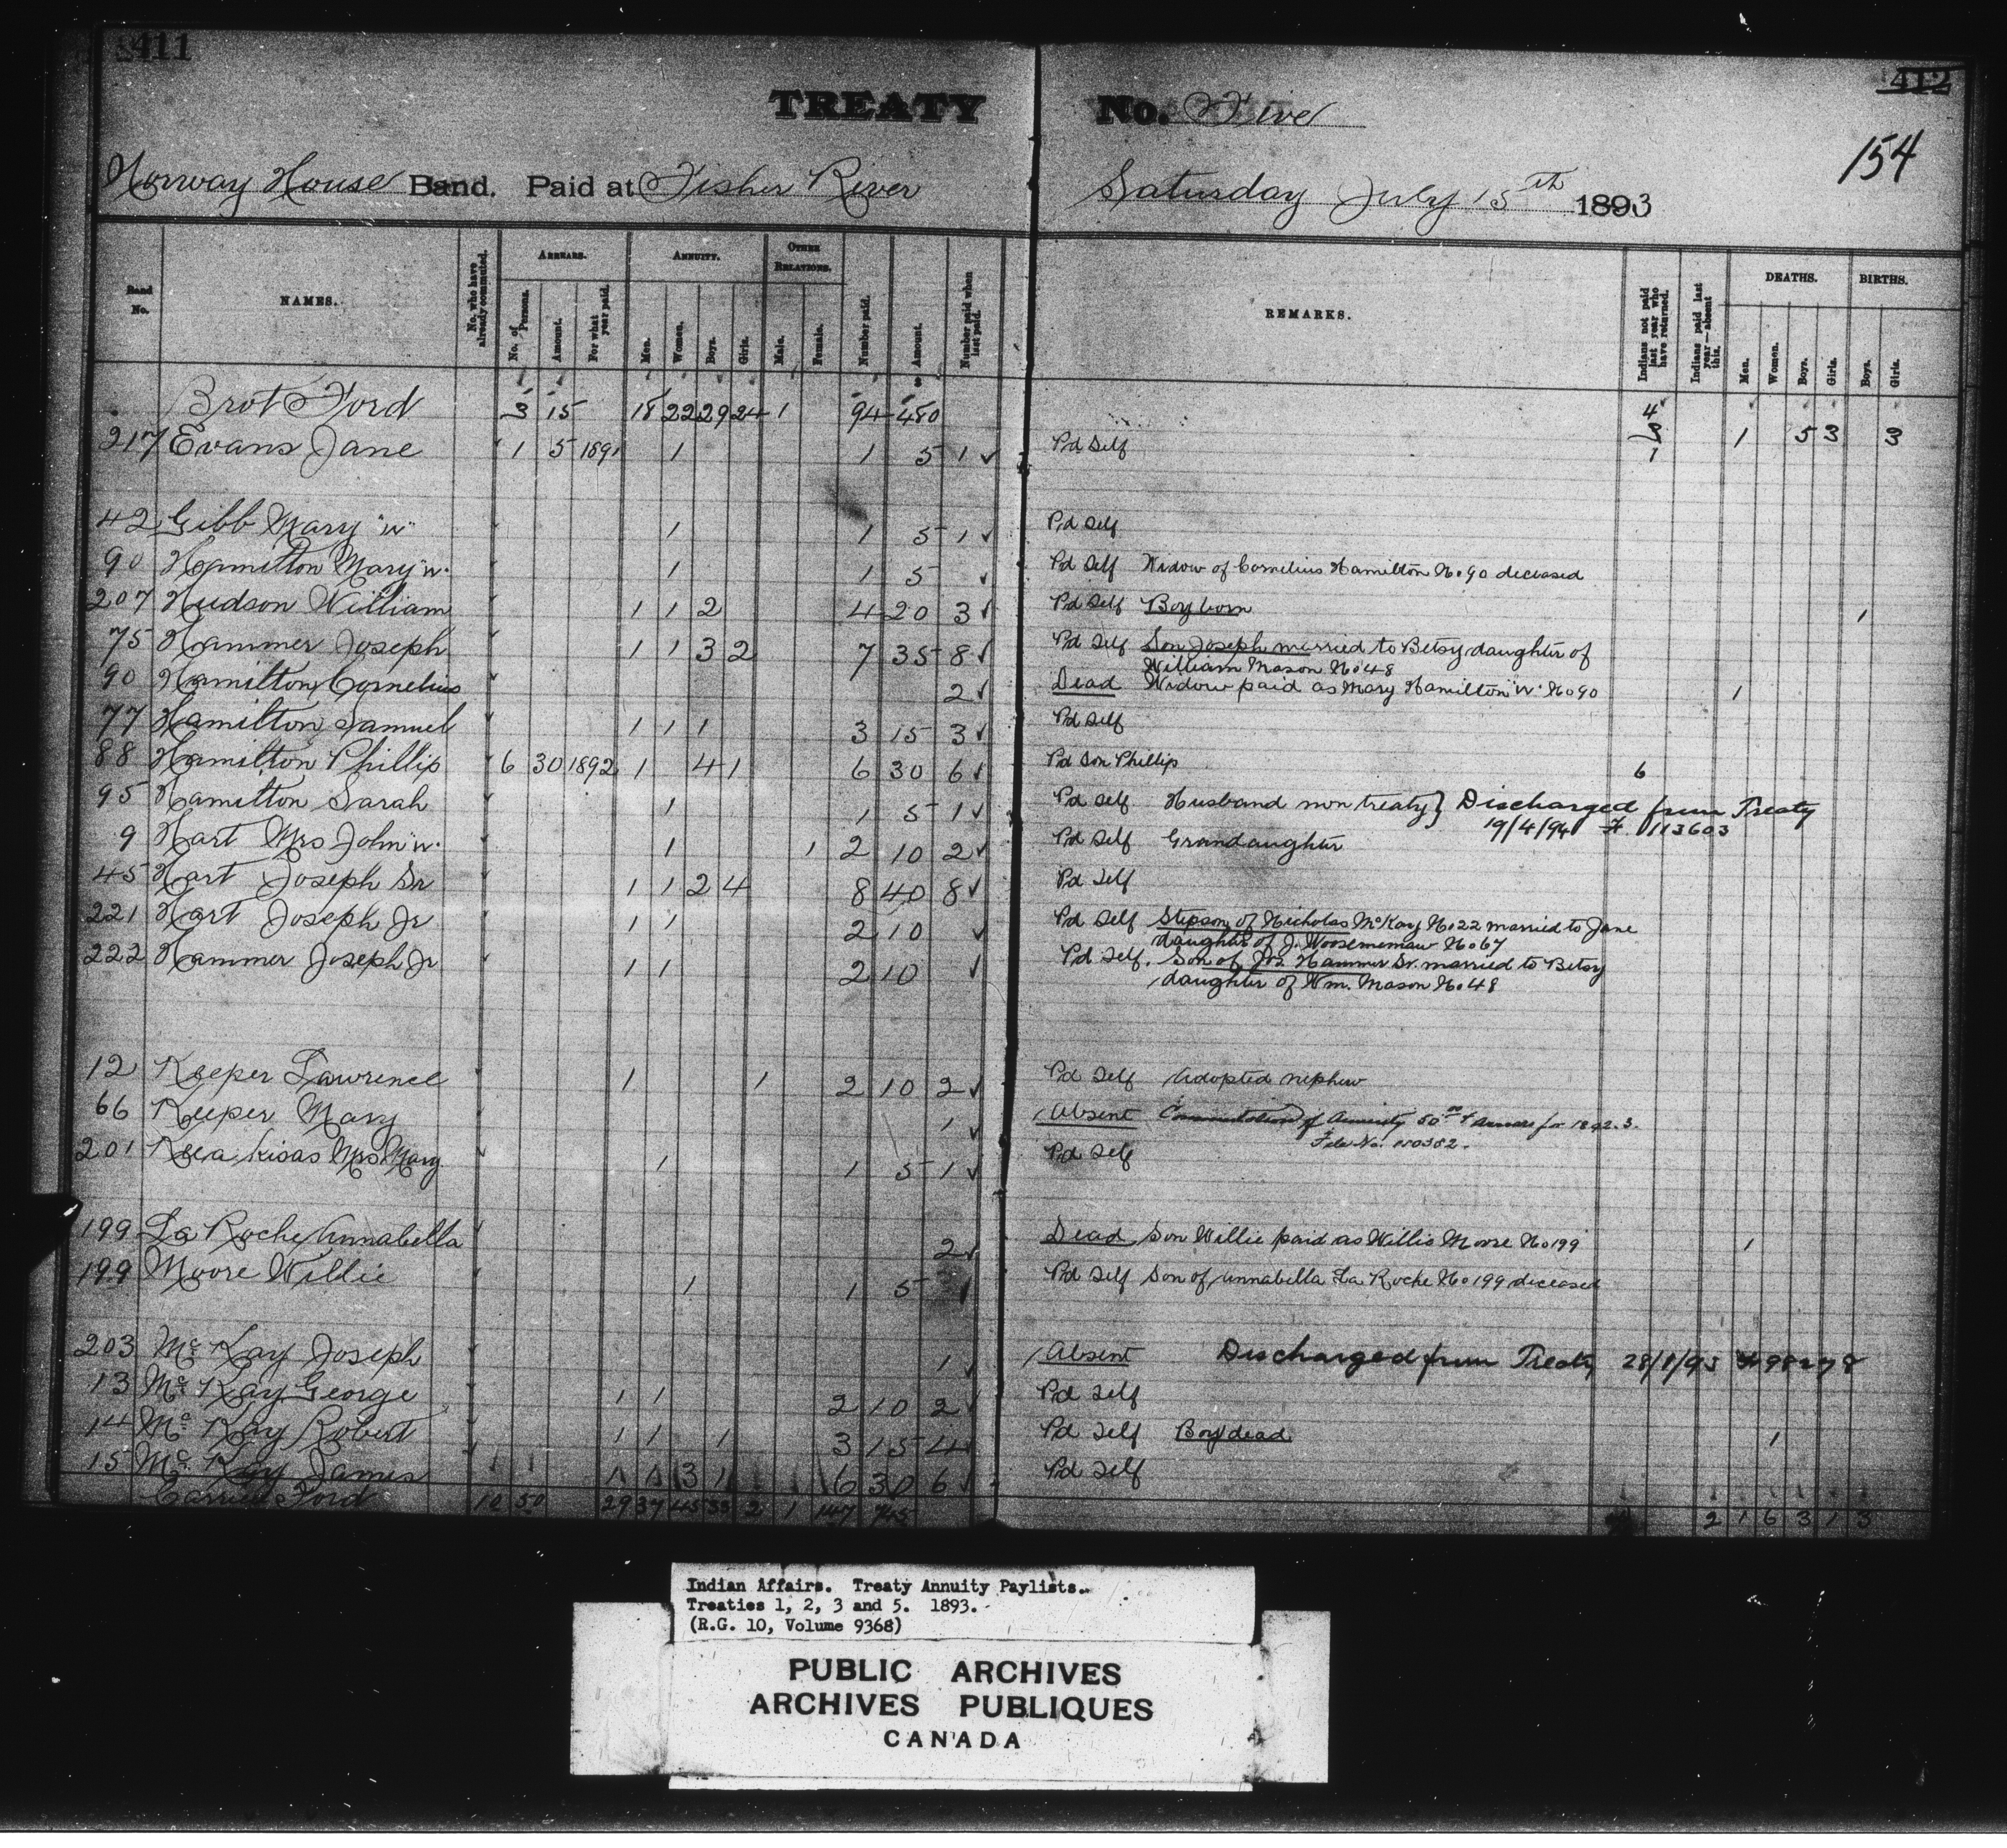 411
412
TREATY No. Five
154
Norway House Band. Paid at Fisher River Saturday July 15th 1893
Band No. NAMES. No. who have already commuted. ARREARS. No. of Persons. Amount. For what year paid. ANNUITY. Men. Women. Boys. Girls. OTHER RELATIONS. Male. Female. Number paid. Amount. Number paid when last paid. REMARKS. Indians not paid last year who have returned. Indians paid last year—absent this. DEATHS. Men. Women. Boys. Girls. BIRTHS. Boys. Girls.
Brot Ford 3 15 18 22 29 24 1 94 480 4 1 5 3 3
217 Evans Jane 1 5 1891 1 1 5 1 Pd Self 1
42 Gibb Mary "W" 1 1 5 1 Pd Self
90 Hamilton Mary "W" 1 1 5 Pd Self Widow of Cornelius Hamilton No 90 deceased
207 Hudson William 1 1 2 4 20 3 Pd Self Boy born 1
75 Hammer Joseph 1 1 3 2 7 35 8 Pd Self Son Joseph married to Betsy daughter of
William Mason No 48
90 Hamilton Cornelius 2 Dead Widow paid as Mary Hamilton "W" No 90 1
77 Hamilton Samuel 1 1 1 3 15 3 Pd Self
88 Hamilton Phillip 6 30 1892 1 4 1 6 30 6 Pd Son Phillip 6
95 Hamilton Sarah 1 1 5 1 Pd Self Husband non treaty } Discharged from Treaty
19/4/94 F. 113603
9 Hart Mrs John "W" 1 1 2 10 2 Pd Self Grandaughter
45 Hart Joseph Sr 1 1 2 4 8 40 8 Pd Self
221 Hart Joseph Jr 1 1 2 10 Pd Self Stepson of Nicholas McKay No 22 married to Jane
daughter of J. No 67
222 Hammer Joseph Jr 1 1 2 10 Pd Self. Son of Jos. Hammer Sr. married to Betsy
daughter of Wm. Mason No 48
12 Keeper Lawrence 1 1 2 10 2 Pd Self Adopted nephew
66 Keeper Mary 1 Absent Commutation of Annuity 50 00 + Arrears for 1892.3.
File No.
201 Keea kisas Mrs Mary 1 1 5 1 Pd Self
199 La Roche Annabella 2 Dead Son Willie paid as Willie Moore No 199 1
199 Moore Willie 1 1 5 Pd Self Son of Annabella La Roche No 199 deceased
203 Mc Kay Joseph 1 Absent Discharged from Treaty
13 Mc Kay George 1 1 2 10 2 Pd Self
14 Mc Kay Robert 1 1 1 3 15 4 Pd Self Boy dead 1
15 Mc Kay James 1 1 3 1 6 30 6 Pd Self
Carried Ford 10 50 29 37 45 33 2 1 147 745 2 1 6 3 1 3
Indian Affairs. Treaty Annuity Paylists.
Treaties 1, 2, 3 and 5. 1893.
(R.G. 10, Volume 9368)
PUBLIC ARCHIVES
ARCHIVES PUBLIQUES
CANADA